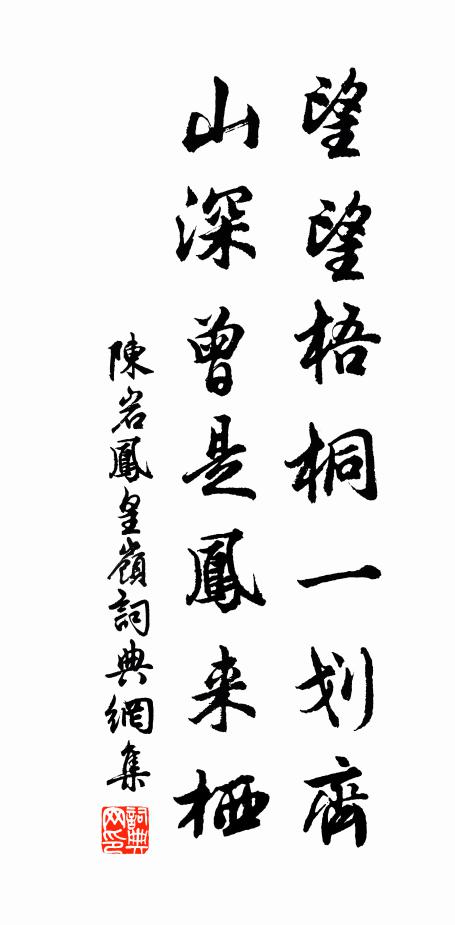 望望梧桐一划齊
山深曾是鳳来栖
陳岩鳳皇嶺詞典網集
詞典網印